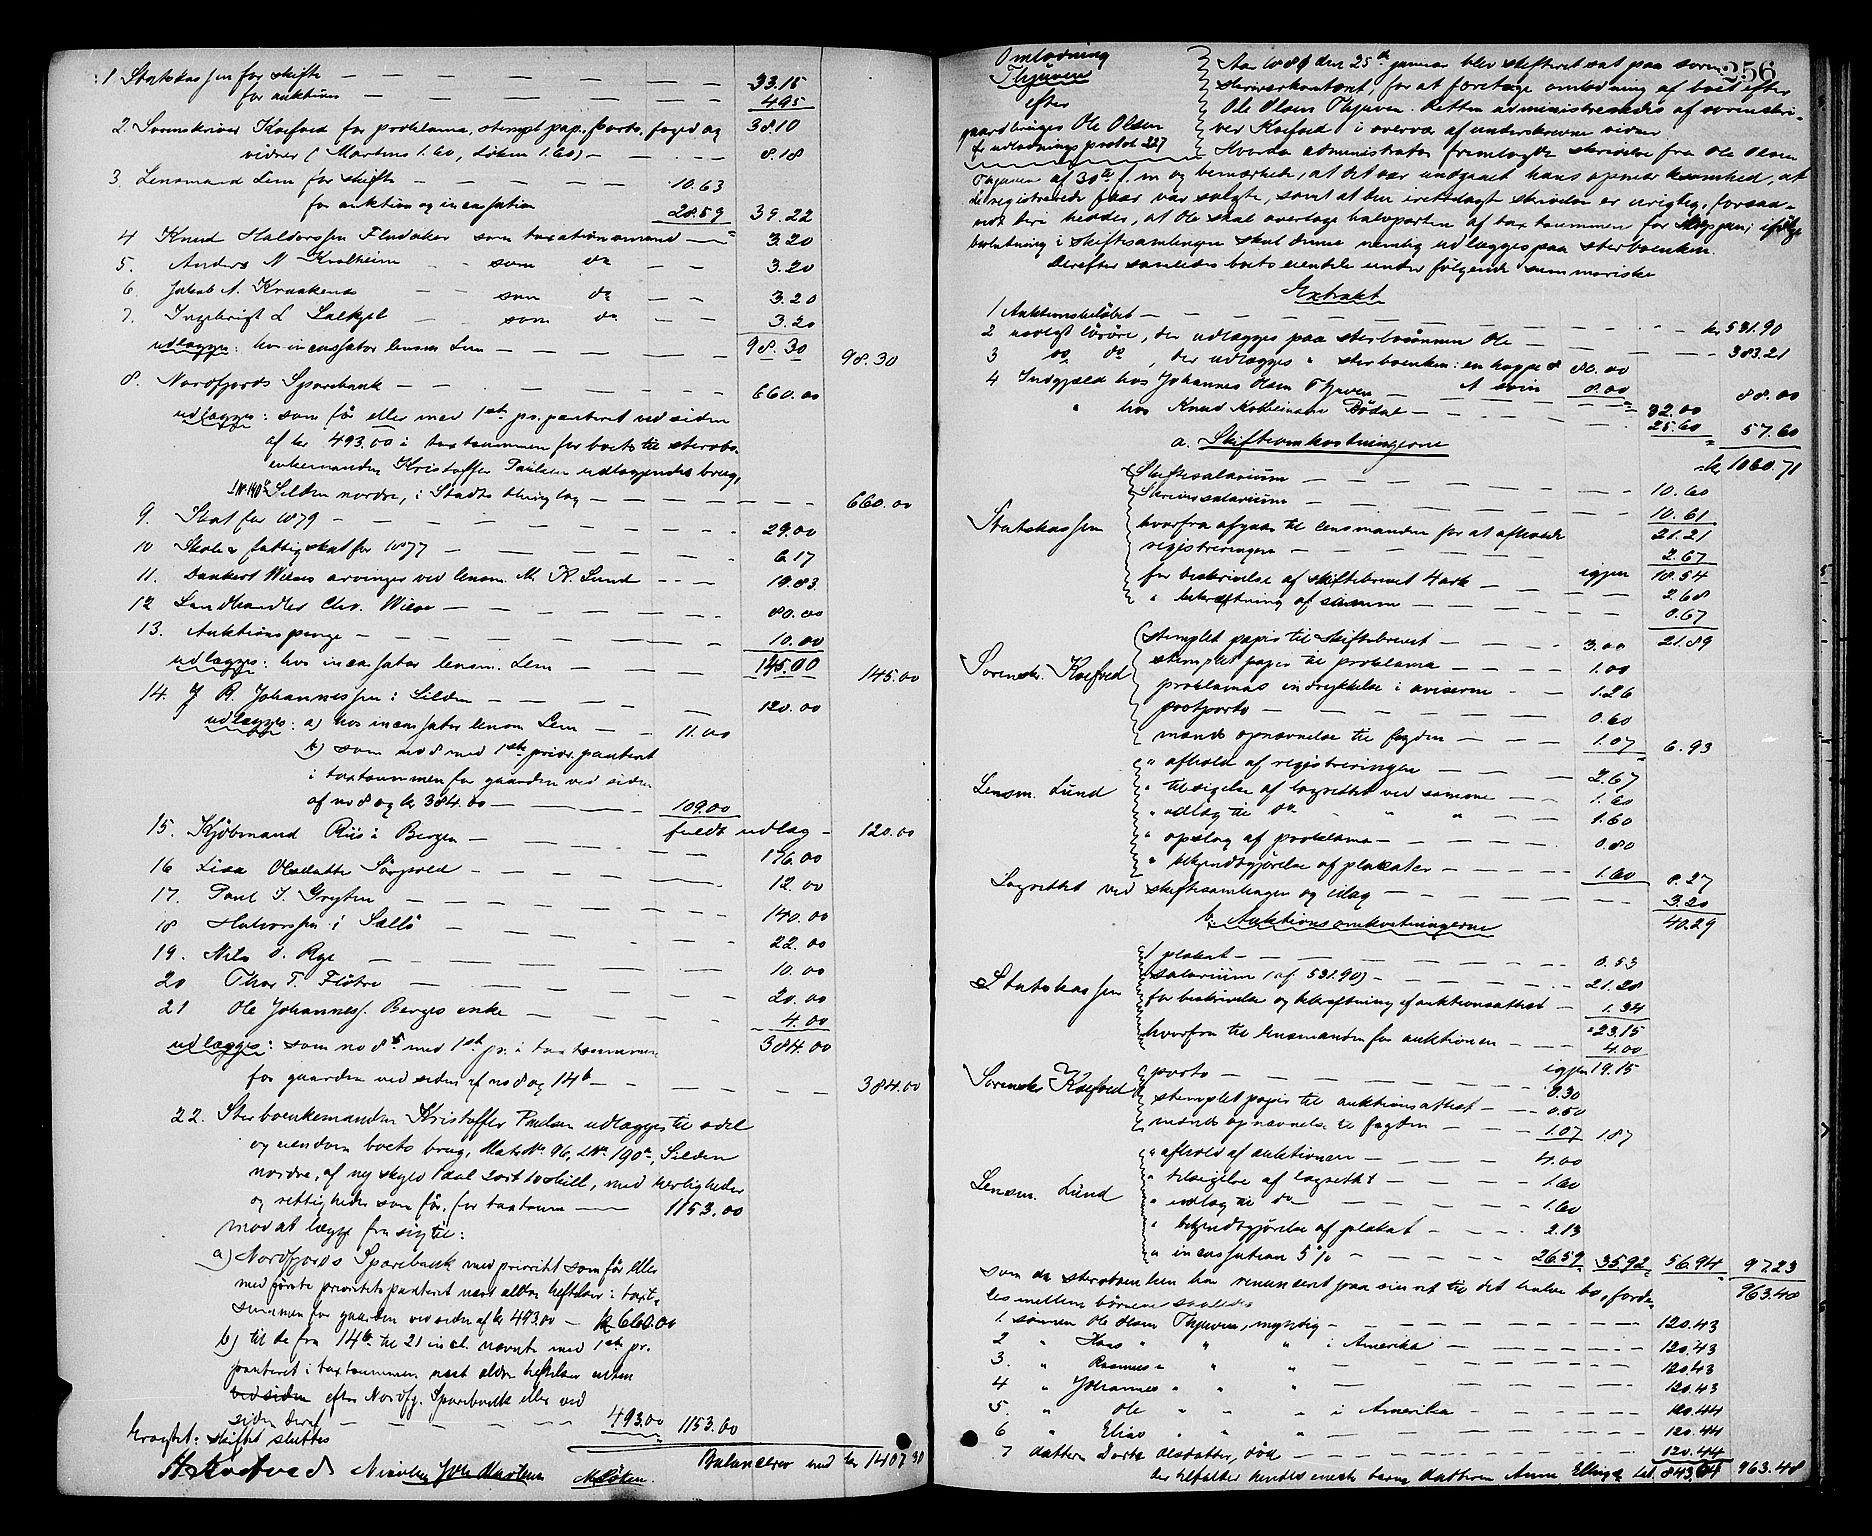 1 Statskassen for skifte — — — — — 33.15
for auktion — — — — — 4.95
38.10
2. Sorenskriver Koefoed for proklama, stempl. pap., porto, foged og
vidner (Martens 1.60, Løken 1.60) — — — 8.18
3. Lensmand Lem for skifte — — — — 10.63
for auktion og incassation 28.59 39.22
4 Knud Haldorssen Flodaker som taxationsmand — 3.20
5. Anders N som do — — 3.20
6. Jakob A. Kraakenes — — som do — — 3.20
7. Ingebrigt L som do — — 3.20
udlægges: hos incassator lensm. Lem — — — — 98.30 98.30
8. Nordfjords Sparebank — — — — — 660.00
udlægges: som før eller med 1ste pr. panteret ved siden
af kr 493.00 i taxtsummen for boets til sterbo-
enkemanden Kristoffer Paulsen udlagende brug,
Silden nordre, i Stadts thinglag — — — — — 660.00
9. Skat for 1879 — — — — — — 29.00
10 Skole & fattigskat for 1877 — — — — — 6.17
11. Dankert Wieses arvinger ved lensm. M. K. Lund — — — 19.83
12 Landhandler Chr. Wiese — — — — — 80.00
13. Auktionspenge — — — — — 10.00
udlægges: hos incassator lensm. Lem — — — 145.00 145.00
14. J R. Johannessen i Silden — — — — 120.00
udlægges: a) hos incassator lensm Lem — — 11.00
b) som no 8 med 1ste prior. panteret
i taxtsummen for gaarden ved siden
af no 8 og kr 384.00 — — 109.00
fuldt udlæg — 120.00
15. Kjøbmand Riis i Bergen — — — — 176.00
16 Lisa Olsdatter — — — — 12.00
17. Paul J. Gryten — — — — 140.00
18 Halvorssen i Sællø — — — — 22.00
19. Nils O. Rye — — — — 10.00
20 Thor T. Fløtre — — — — 20.00
21 Ole Johannes. Berges enke — — — — 4.00
udlægges: som no 8 med 1ste pr. i taxtsummen 384.00
for gaarden ved siden af no 8 og 14b — — — — — 384.00
22. Sterboenkemanden Kristoffer Paulsen udlægges til odel
og eiendom boets brug, Mats No 96, LNo 190a, Silden
nordre, af ny skyld 1 daler 2 ort 10 skill, med herligheder
og rettigheder som før, for taxtsum — 1153.00
mod at lægge fra sig til:
a) Nordfjords Sparebank med prioritet som før eller
med første prioritets panteret næst ældre heftelser i taxt-
summen for gaarden ved siden af kr 493.00 — kr 660.00
b) til de fra 14b til 21 incl. nævnte med 1ste pr.
panteret i taxtsummen næst ældre heftelser enten
ved siden efter Nordfj. Sparebank eller ved
siden deraf — — — — — 493.00 1153.00
Eragtet: skiftet sluttes
Balancerer med kr 1407.30
H. Koefoed Nicolay Martens M. Løken.

256
Omlodning
Thjuven
efter
gaardbruger Ole Olsen
se udlodnings protok 227
Aar 1881 den 25de januar blev skifteret sat paa soren-
skriverkontoret, for at foretage omlodning af boet efter
Ole Olsen Thjuven. Retten administreredes af sorenskri-
ver Koefoed i overvær af underskrevne vidner
Hvorda administrator fremlagde skrivelse fra Ole Olsen
Thjuven af 30te f. m og bemærkede, at det var undgaaet hans opmærksomhed, at
de registrerede faar var solgte, samt at den irettelagt skrivelse er urigtig, forsaa-
vidt deri heder, at Ole skal overtage halvparten af taxtsummen for ifølge
beslutning i skiftesamlingen skal denne nemlig udlægges paa sterboenken.
Derefter samledes boets eiendele under følgende summariske
Extrakt
1 Auktionsbeløbet — — — — — — — — kr 531.90
2 usolgt løsøre, der udlægges paa sterbosønnen Ole — — — — — 383.21
3 do do, der udlægges " sterboenken: en hoppe & 80.00
1 svin 8.00 88.00
4 Indgjæld hos Johannes Olsen Thjuven — — — — 32.00
" hos Knud Bødal — — — — — 25.60 57.60
kr 1060.71
a. Skifteomkostningerne
Statskassen
Skiftesalarium — — — — — — 10.60
Skriversalarium — — — — — 10.61
21.21
hvorfra afgaar til lensmanden for at afholde
registreringen — — — — — 2.67
igjen 18.54
for beskrivelse af skiftebrevet 4 ark — — — 2.68
" bekræftning af samme — — — — — 0.67
21.89
Sorenskr. Koefoed
stemplet papir til skiftebrevet — — — 3.00
stemplet papir til proklama — — — 1.00
proklamas indrykkelse i aviserne — — 1.26
postporto — — — — — 0.60
mænds opnævnelse til fogden — — — 1.07 6.93
Lensm. Lund
" afhold af registreringen — — — — 2.67
" tilsigelse af lagrettet ved samme — — 1.60
" udlæg til do " " — — 1.60
" opslag af proklama — — — — 0.80
" bekjendtgjørelse af plakater — — — 1.60 8.27
Lagrettet ved skiftesamlingen og idag — — — — — 3.20
40.29
b. Auktionsomkostningerne
Statskassen
plakat — — — — — — 0.53
salarium (af 531.90) — — — — 21.28
for beskrivelse og bekræftning af auktionsattest — 1.34
23.15
hvorfra til lensmanden for auktionen — — 4.00
igjen 19.15
Sorenskr Koefoed
porto — — — — — 0.30
stemplet papir til auktionsattest — — 0.50
mænds opnævnelse til fogden — — 1.07 1.87
Lensm. Lund
" afhold af auktionen — — — 4.00
" tilsigelse af lagrettet — — — 1.60
" udlæg til do — — — 1.60
" bekjendtgjørelse af plakat — — — 2.13
" incassation 5% — — — — 26.59 35.92 56.94 97.23
963.48
som da sterboenken har renunceret paa sin ret til det halve bo, forde-
les mellem børnene saaledes
1. sønnen Ole Olsen Thjuven, myndig — — — — — 120.43
2 " Hans " " " i Amerika — — — 120.43
3. " Rasmus " " " — — — — 120.43
4 " Johannes " " " — — — — 120.43
5. " Ole " " " i Amerika — — — 120.44
6 " Elias " " " — — — — 120.44
7 datteren Dorte Olsdatter, død — — — — 120.44
der tilfalder hendes eneste barn, datteren Anne 843.04 963.48